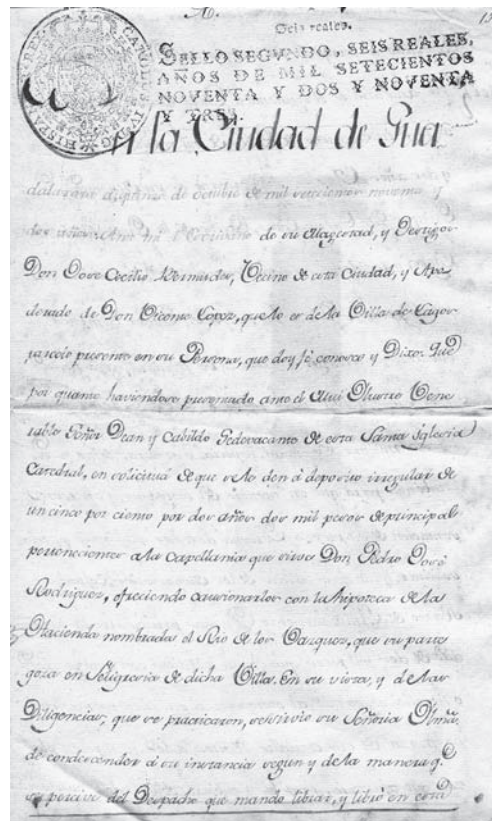 Seis reales.
SELLO SEGVNDO, SEIS REALES,
AÑOS DE MIL SETECIENTOS
NOVENTA Y DOS Y NOVENTA
Y TRES.
la Ciudad de Gua
dalaxara de octubre de mil setecientos noventa y
dos años: Ante mi el Escribano de su Magestad, y Testigos
Don Jose Cecilio Bermudez, Vecino de esta Ciudad, y Apo
derado de Don Vicente Lopez, que lo es de la Villa de Lagos
parecio presente en su Persona, que doy fé, conosco y Dixo: Que
por quanto haviendose presentado ante el Mui Ylustre Vene
rable Señor Dean y Cabildo Sedevacante de esta Santa Iglesia
Catedral, en solicitud de que se le den á deposito irregular de
un cinco por ciento por dos años dos mil pesos de principal
pertenecientes a la Capellania que sirve Don Pedro José
Rodriguez, ofreciendo caucionarlos con la hipoteca de la
Hacienda nombrada el Rio de los Vazquez, que su parte
goza en Feligrecia de dicha Villa. En su vista, y de las
Diligencias, que se practicaron, resolvio su Señoria
de condescender á su instancia segun y de la manera q.e
se percive del Despacho que mandó librar, y libró en esta